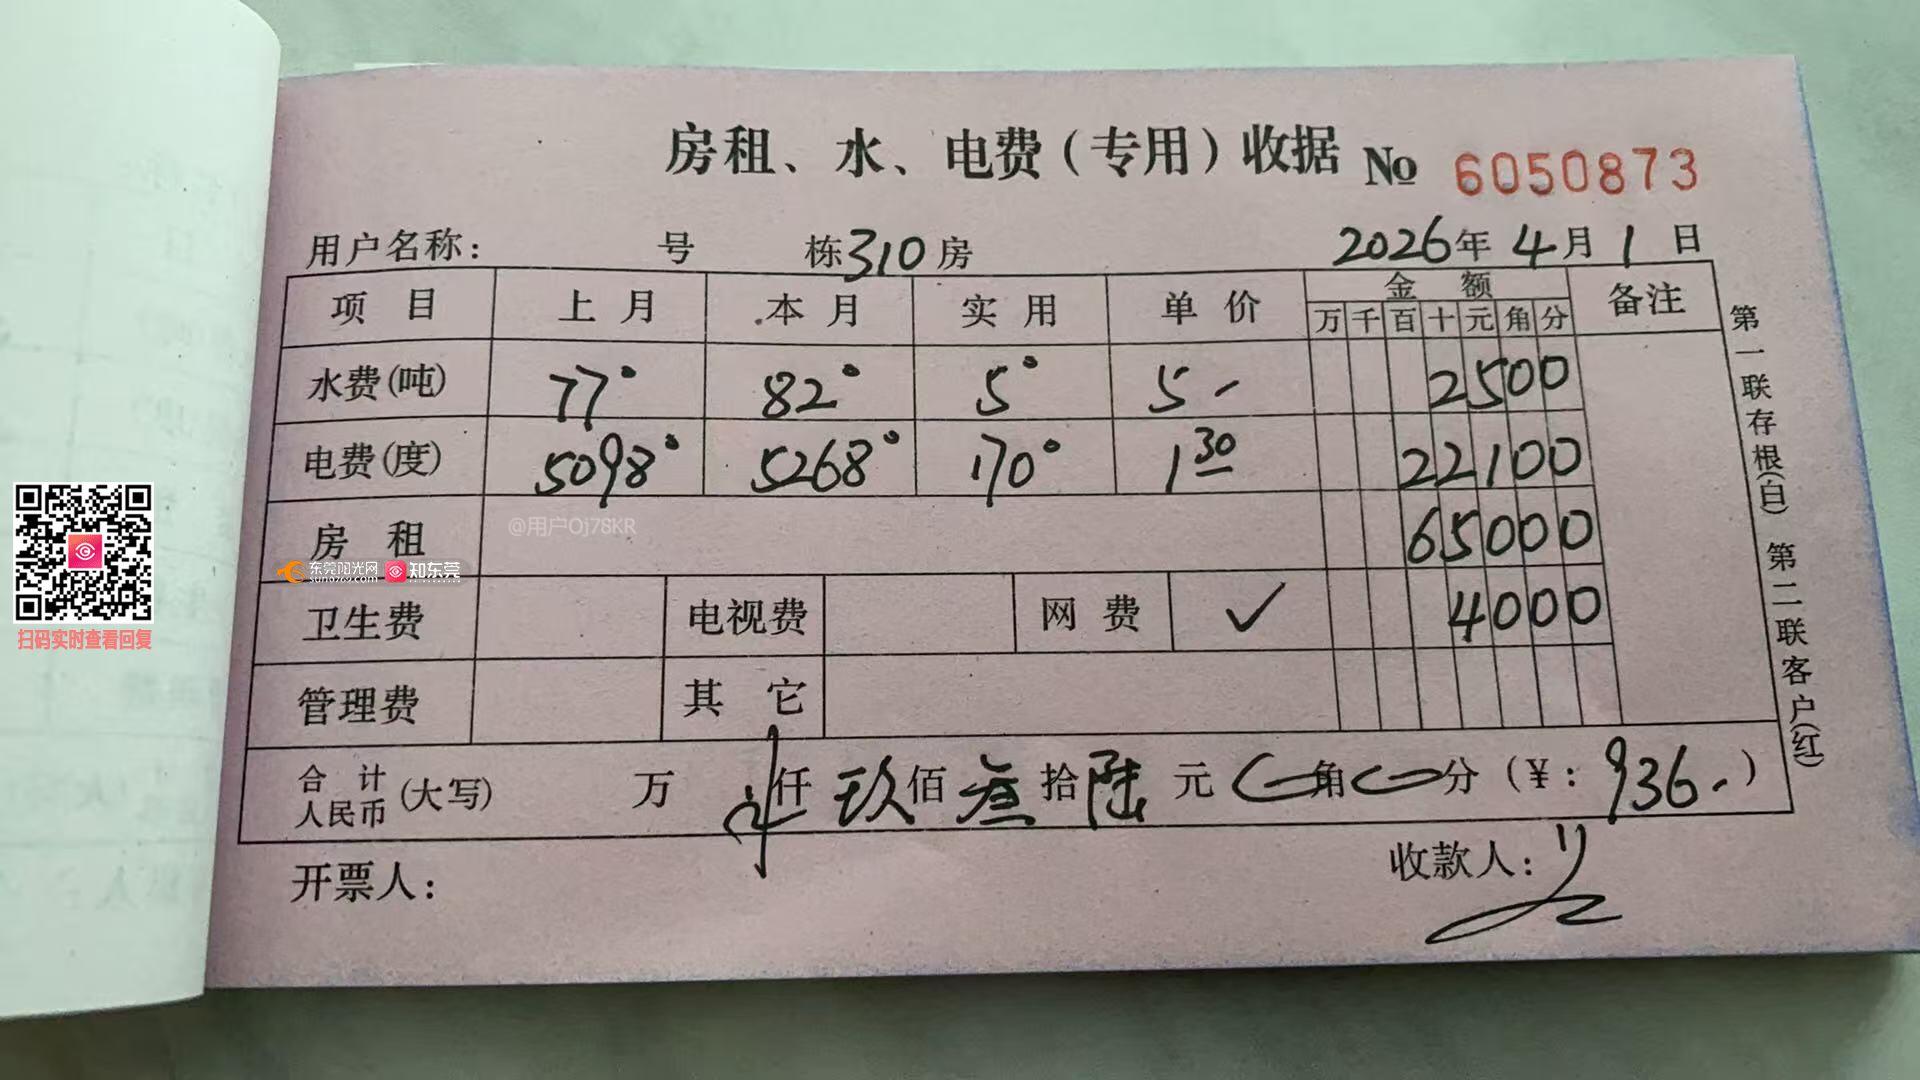 房租、水、电费(专用)收据 № 6050873
用户名称: 号 栋310房 2026年4月1日
项目 上月 本月 实用 单价 金额 备注
万千百十元角分
水费(吨) 77° 82° 5° 5- 2500
电费(度) 5098° 5268° 170° 1 30 22100
房租 65000
卫生费 电视费 网费 ✓ 4000
管理费 其它
合计人民币(大写) 万 仟玖佰叁拾陆元 角 分(¥:936.)
开票人: 收款人:
第一联存根(白) 第二联客户(红)
@用户Oj78KR
东莞阳光网 sun0769.com 知东莞
扫码实时查看回复